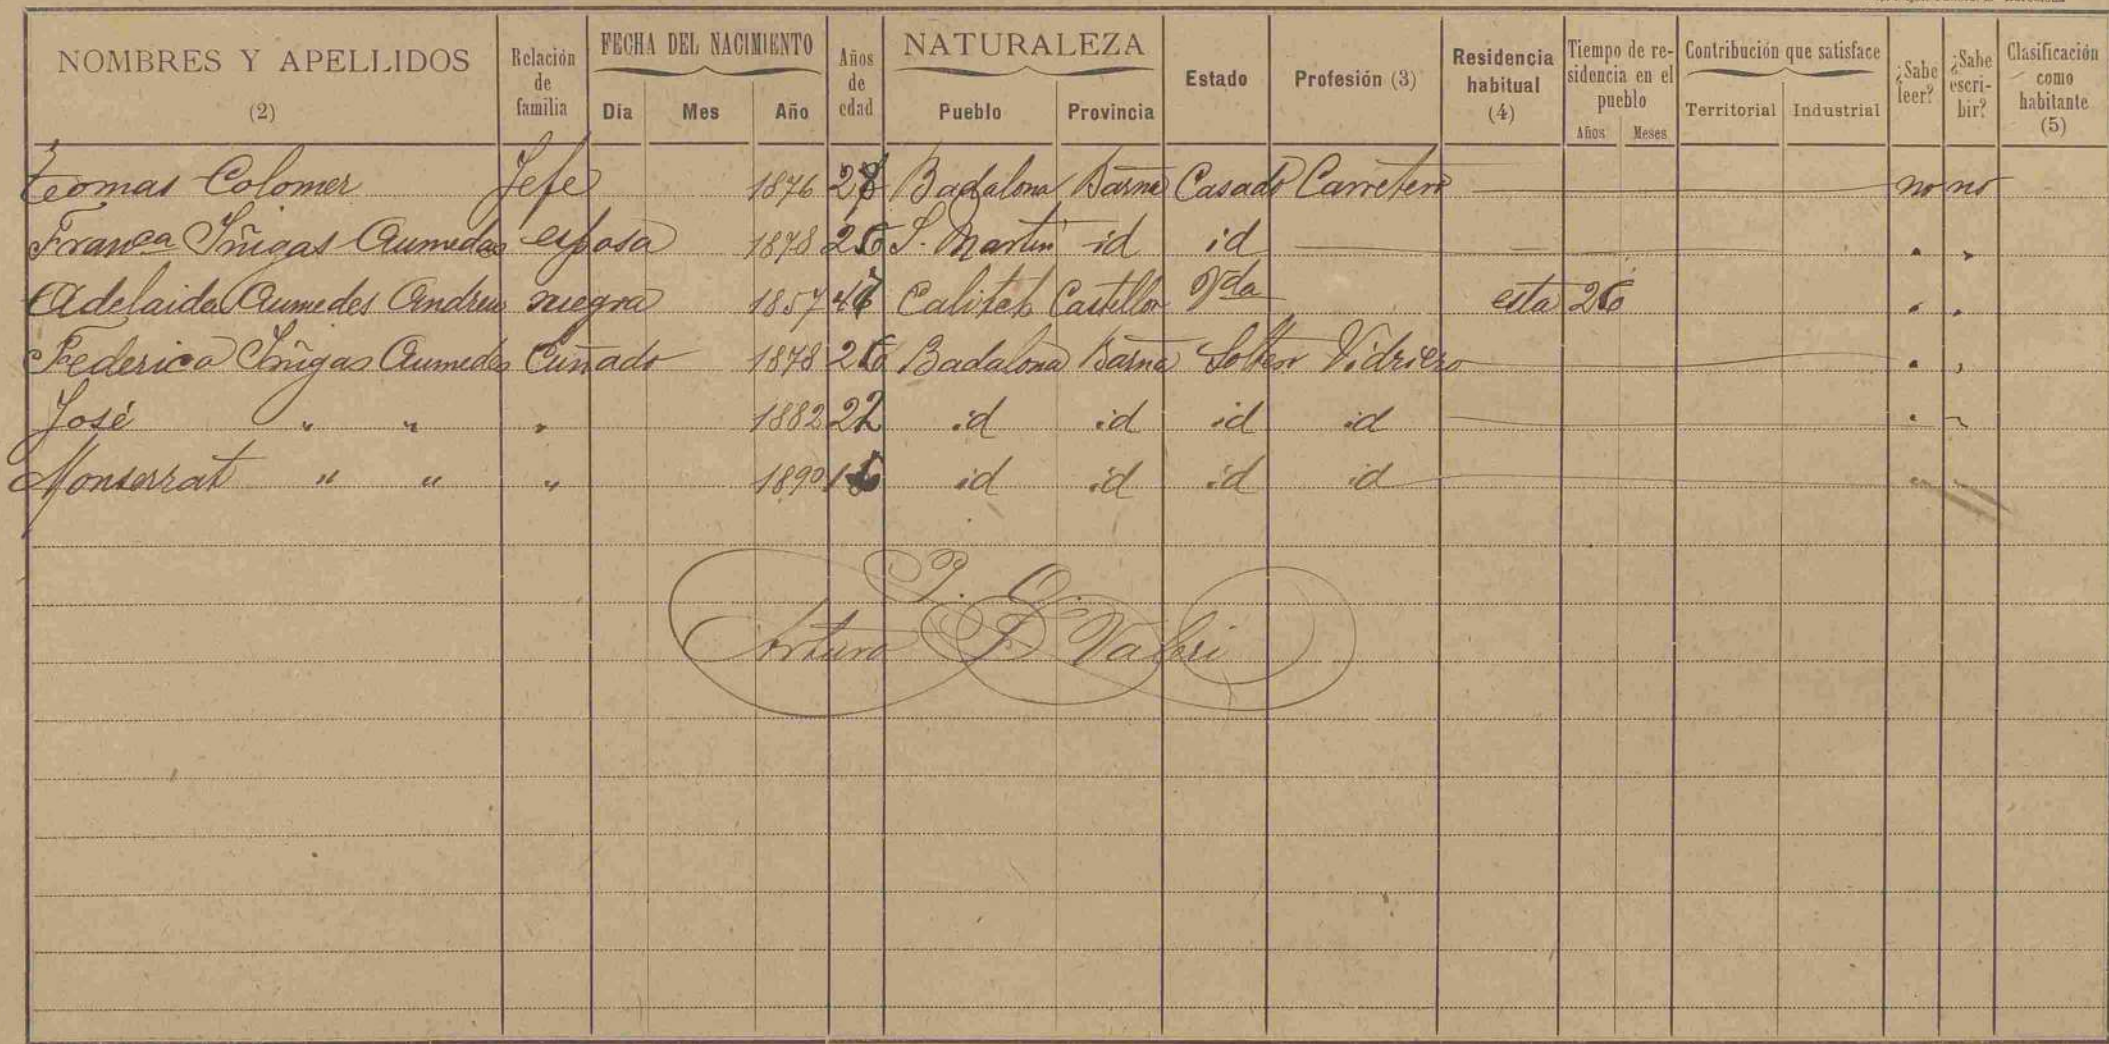 NOMBRES Y APELLIDOS (2) Relación de familia FECHA DEL NACIMIENTO Día Mes Año Años de edad NATURALEZA Pueblo Provincia Estado Profesión (3) Residencia habitual (4) Tiempo de residencia en el pueblo Años Meses Contribución que satisface Territorial Industrial ¿Sabe leer? ¿Sabe escribir? Clasificación como habitante (5)
Colomer Jefe 1876 Badalona Barna Casado Carretero no no
Franca Iñigas Aumedas esposa 1878 S. Martin id id
Adelaida Aumedes Andreu suegra 1857 Castellon Vda esta
Federico Iñigas Aumedes Cuñado 1878 Badalona Barna Soltero Vidriero
José " " " 1882 22 id id id id
Monserrat " " " 1890 id id id id
P. O.
Arturo F Valeri